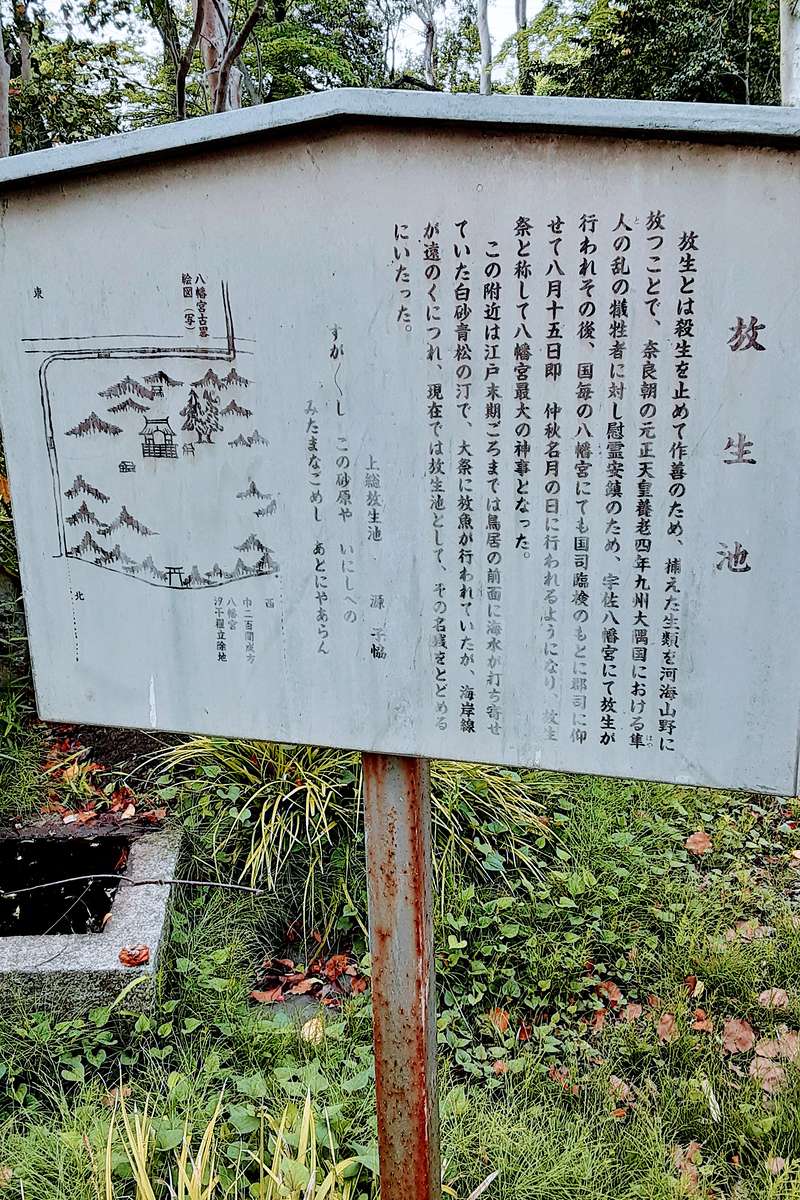 放生池
放生とは殺生を止めて作善のため、捕えた生類を河海山野に
放つことで、奈良朝の元正天皇養老四年九州大隅国における隼
はや
人の乱の犠牲者に対し慰霊安鎮のため、宇佐八幡宮にて放生が
と
行われその後、国毎の八幡宮にても国司臨検のもとに郡司に仰
せて八月十五日即 仲秋名月の日に行われるようになり、放生
祭と称して八幡宮最大の神事となった。
この附近は江戸末期ごろまでは鳥居の前面に海水が打ち寄せ
ていた白砂青松の汀で、大祭に放魚が行われていたが、海岸線
が遠のくにつれ、現在では放生池として、その名残をとどめる
にいたった。
上総放生池 源
すが〱し この砂原や いにしへの
みたまなごめし あとにやあらん
八幡宮古畧
絵図(写)
東
北
西
八幡宮